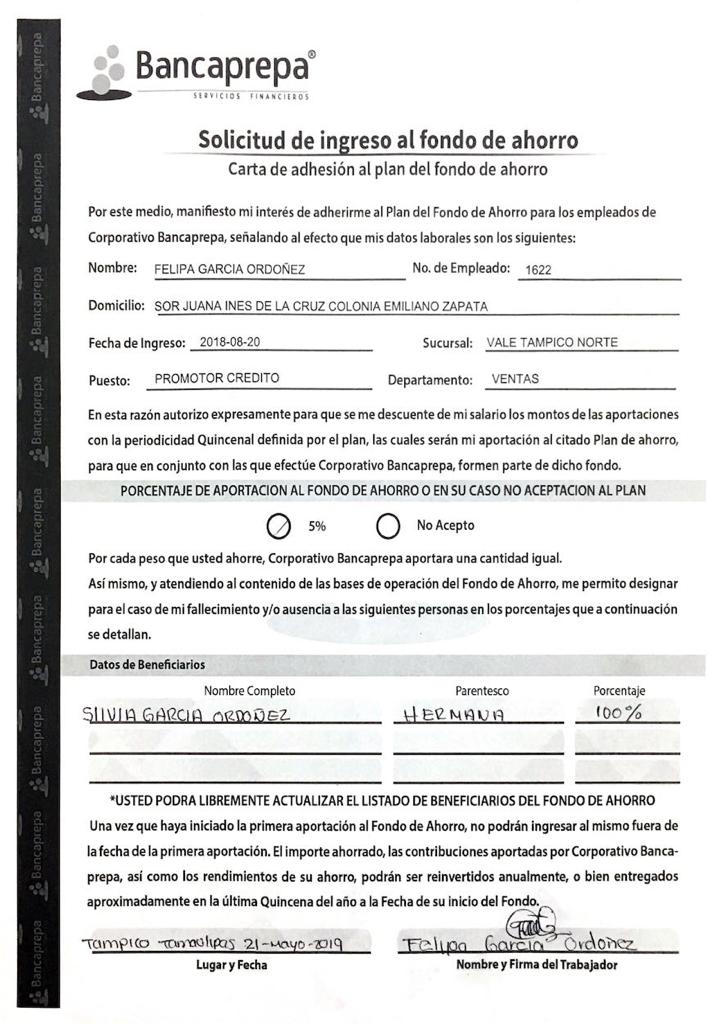 Bancaprepa®
SERVICIOS FINANCIEROS
Solicitud de ingreso al fondo de ahorro
Carta de adhesión al plan del fondo de ahorro
Por este medio, manifiesto mi interés de adherirme al Plan del Fondo de Ahorro para los empleados de
Corporativo Bancaprepa, señalando al efecto que mis datos laborales son los siguientes:
Nombre: FELIPA GARCIA ORDOÑEZ No. de Empleado: 1622
Domicilio: SOR JUANA INES DE LA CRUZ COLONIA EMILIANO ZAPATA
Fecha de Ingreso: 2018-08-20 Sucursal: VALE TAMPICO NORTE
Puesto: PROMOTOR CREDITO Departamento: VENTAS
En esta razón autorizo expresamente para que se me descuente de mi salario los montos de las aportaciones
con la periodicidad Quincenal definida por el plan, las cuales serán mi aportación al citado Plan de ahorro,
para que en conjunto con las que efectúe Corporativo Bancaprepa, formen parte de dicho fondo.
PORCENTAJE DE APORTACION AL FONDO DE AHORRO O EN SU CASO NO ACEPTACION AL PLAN
5% No Acepto
Por cada peso que usted ahorre, Corporativo Bancaprepa aportara una cantidad igual.
Así mismo, y atendiendo al contenido de las bases de operación del Fondo de Ahorro, me permito designar
para el caso de mi fallecimiento y/o ausencia a las siguientes personas en los porcentajes que a continuación
se detallan.
Datos de Beneficiarios
Nombre Completo Parentesco Porcentaje
SIlVIA GARCIA ORDOÑEZ HERMANA 100%
*USTED PODRA LIBREMENTE ACTUALIZAR EL LISTADO DE BENEFICIARIOS DEL FONDO DE AHORRO
Una vez que haya iniciado la primera aportación al Fondo de Ahorro, no podrán ingresar al mismo fuera de
la fecha de la primera aportación. El importe ahorrado, las contribuciones aportadas por Corporativo Banca-
prepa, así como los rendimientos de su ahorro, podrán ser reinvertidos anualmente, o bien entregados
aproximadamente en la última Quincena del año a la Fecha de su inicio del Fondo.
Tampico Tamaulipas 21-Mayo-2019 Felipa Garcia Ordoñez
Lugar y Fecha Nombre y Firma del Trabajador
Bancaprepa
Bancaprepa
Bancaprepa
Bancaprepa
Bancaprepa
Bancaprepa
Bancaprepa
Bancaprepa
Bancaprepa